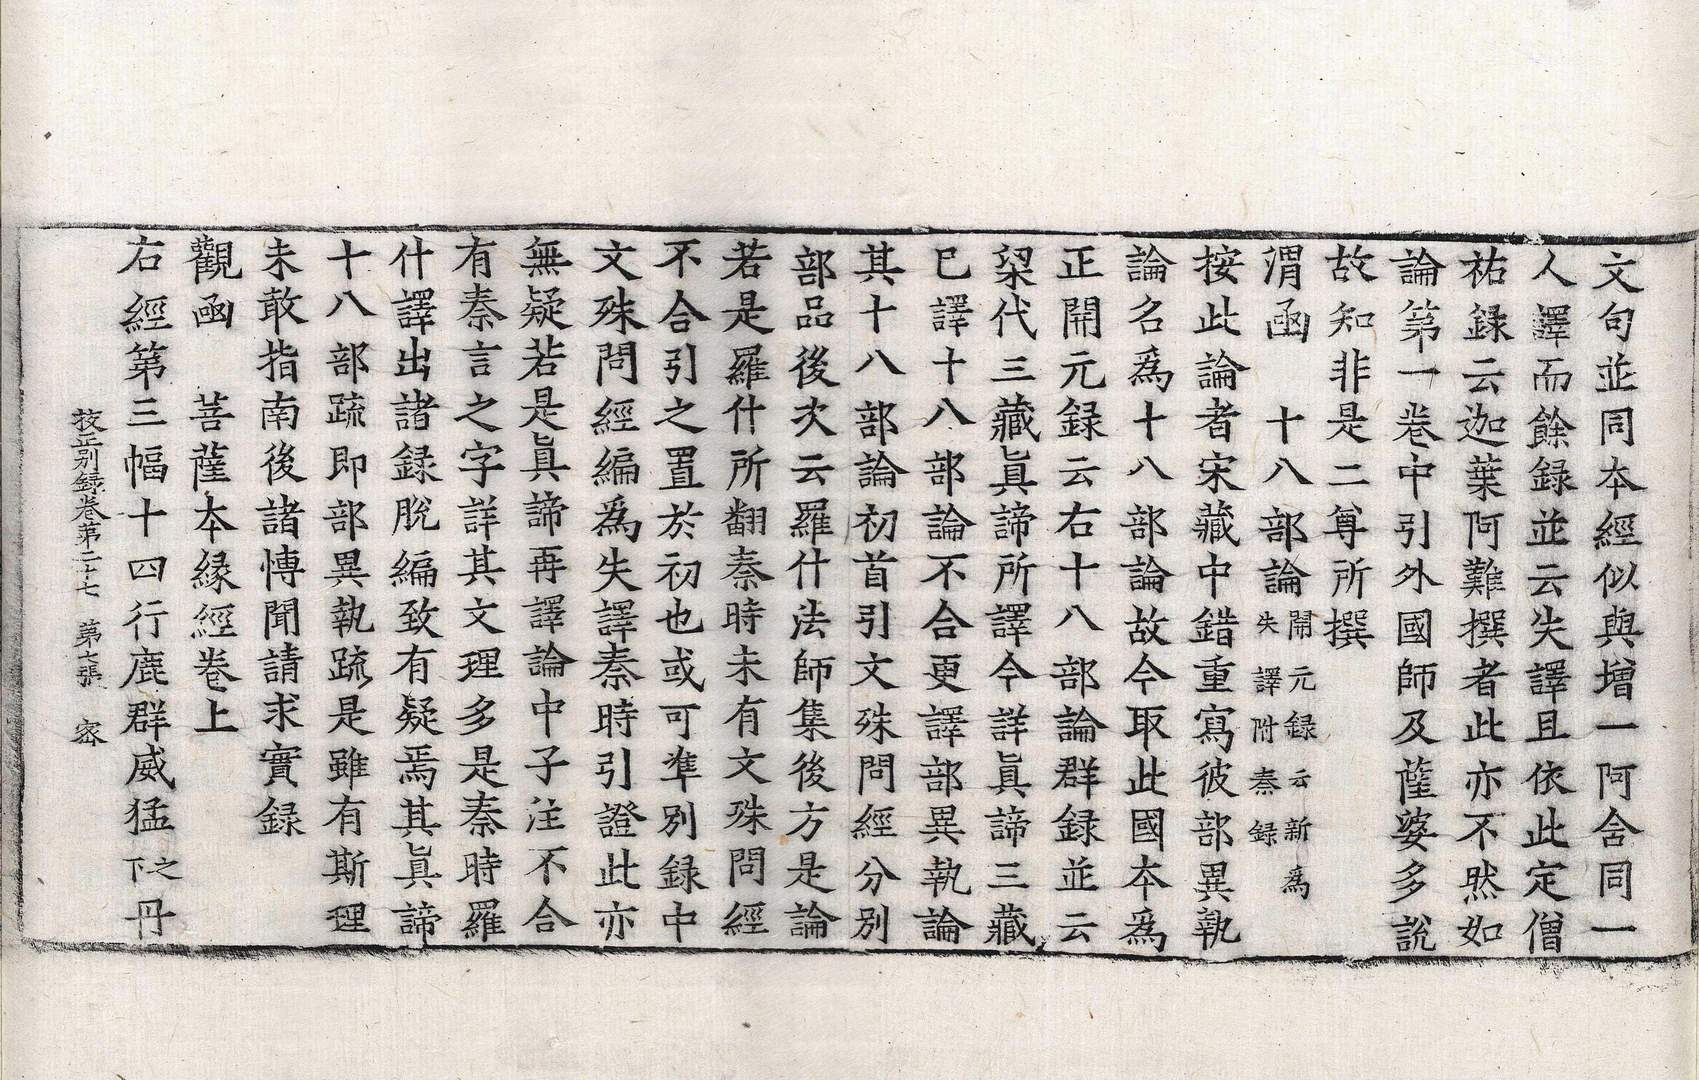 文句並同本經似與增一阿含同一
人譯而餘録並云失譯且依此定僧
祐録云迦葉阿難撰者此亦不然如
論第一卷中引外國師及薩婆多說
故知非是二尊所撰
渭函　十八部論 開元録云新爲
失譯附秦録
按此論者宋藏中錯重寫彼部異執
論名爲十八部論故今取此國本爲
正開元録云右十八部論群録並云
梁代三藏眞諦所譯今詳眞諦三藏
已譯十八部論不合更譯部異執論
其十八部論初首引文殊問經分別
部品後次云羅什法師集後方是論
若是羅什所翻秦時未有文殊問經
不合引之置於初也或可準別録中
文殊問經編爲失譯秦時引證此亦
無疑若是眞諦再譯論中子注不合
有秦言之字詳其文理多是秦時羅
什譯出諸録脫編致有疑焉其眞諦
十八部疏即部異執疏是雖有斯理
未敢指南後諸博聞請求實録
觀函　菩薩本緣經卷上
右經第三幅十四行鹿群威猛 之
下 丹
校正別録卷第二十七　第七張　密